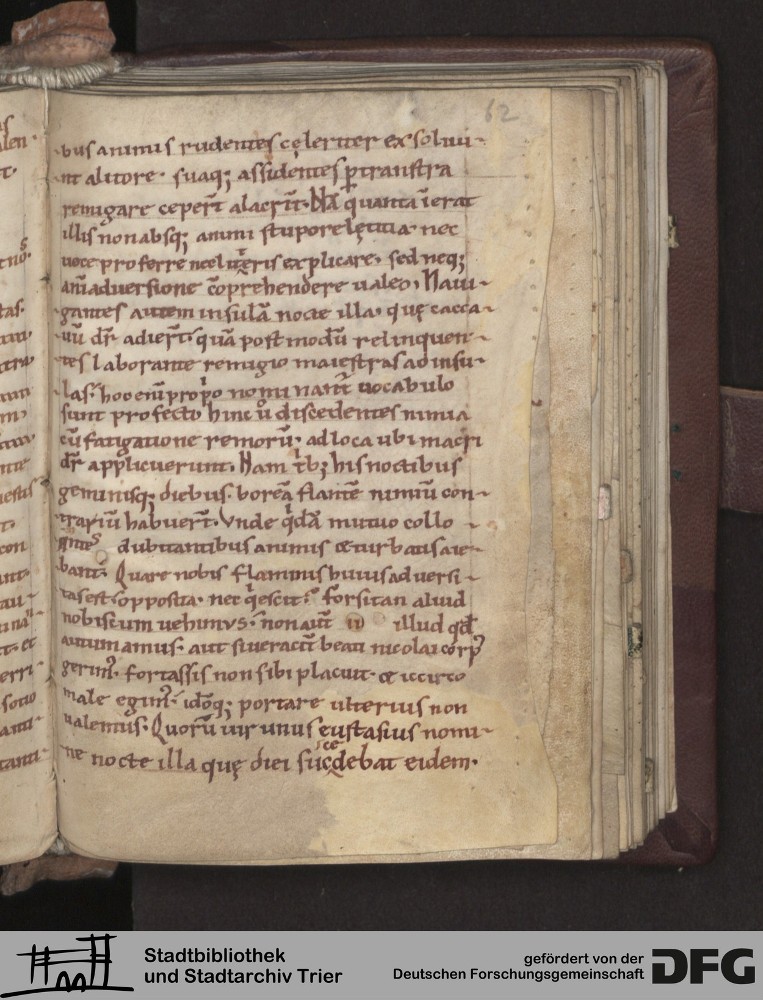 62
bus animis rudentes cęleriter exsolvu-
nt a litore. suaq; assidentes ptranstra
remigare ceper̄t alacrit̄. Nā quanta īerat
illis non absq; animi stupore lętitia. nec
uoce proferre nec litteris explicare. sed neq;
anīaduersione c̄oprehendere ualeo. Naui-
gantes autem insulā nocte illa. quę cacca-
uū dr̄ adier̄t. quā post modū relinquen-
tes laborante remigio maiestras ad insu-
las. hoc eni prop̄o nominant̄ uocabulo
sunt profecto hinc ū discedentes nimia
cū fatigatione remorū. ad loca ubi macri
dr̄ applicuerunt. Nam trib; his noctibus
geminisq; diebus. boreā flantē nimiū con-
trariū habuer̄t. Vnde q̇dā mutuo collo-
dubitantibus animis & turbatis aie-
bant. Quare nobis flaminis huius aduersi-
tas est opposita. nec q̇escit? forsitan aliud
nobiscum uehimus. non aut̄ illud qd̄
autumamus. aut si ueracit̄ beati nicolai corp᷒
gerim᷒. fortassis non sibi placuit. & iccirco
male egim᷒. idōq; portare ulterius non
ualemus. Quorū uir unus eustasius nomi-
ne nocte illa quę diei succedebat eidem.
Stadtbibliothek
und Stadtarchiv Trier
gefördert von der
Deutschen Forschungsgemeinschaft
DFG